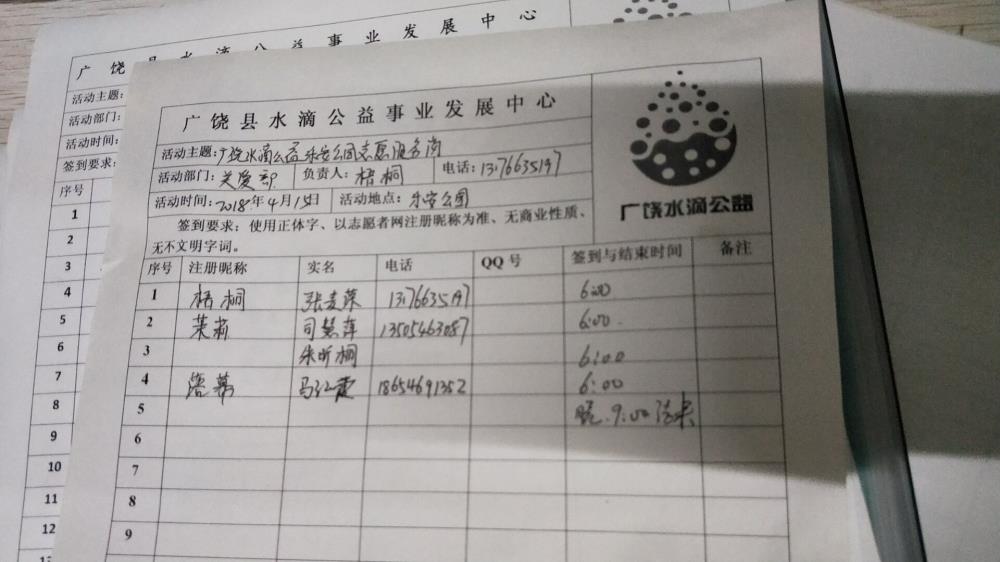 广饶县水滴公益事业发展中心
活动主题:
活动部门:
活动时间:
签到要求:
序号
1
2
3
4
5
6
7
8
9
10
11
12
广饶县水滴公益事业发展中心
活动主题:广饶水滴公益乐安公园志愿服务岗
活动部门:关爱部 负责人:梧桐 电话:13176635197
活动时间:2018年4月15日 活动地点:乐安公园
广饶水滴公益
签到要求:使用正体字、以志愿者网注册昵称为准、无商业性质、
无不文明字词。
序号 注册昵称 实名 电话 QQ号 签到与结束时间 备注
1 梧桐 13176635197 6:00
2 茉莉 司慧萍 13505463087 6:00
3 朱昕桐 6:00
4 落幕 马江霞 18654691352 6:00
5 晚9:00结束
6
7
8
9